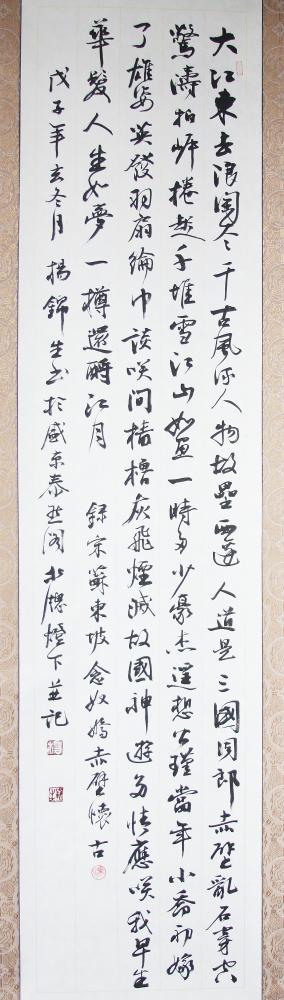 大江東去浪淘尽千古風流人物故壘西邊人道是三國周郎赤壁亂石穿空
驚濤拍岸捲起千堆雪江山如画一時多少豪杰遥想公瑾當年小喬初嫁
了雄姿英發羽扇綸巾談笑间樯櫓灰飛煙滅故國神遊多情應笑我早生
華髮人生如夢一樽還酹江月 録宋蘇東坡念奴嬌赤壁懷古
戊子年玄冬月楊錦生书於盛京泰然阁北牕燈下並記